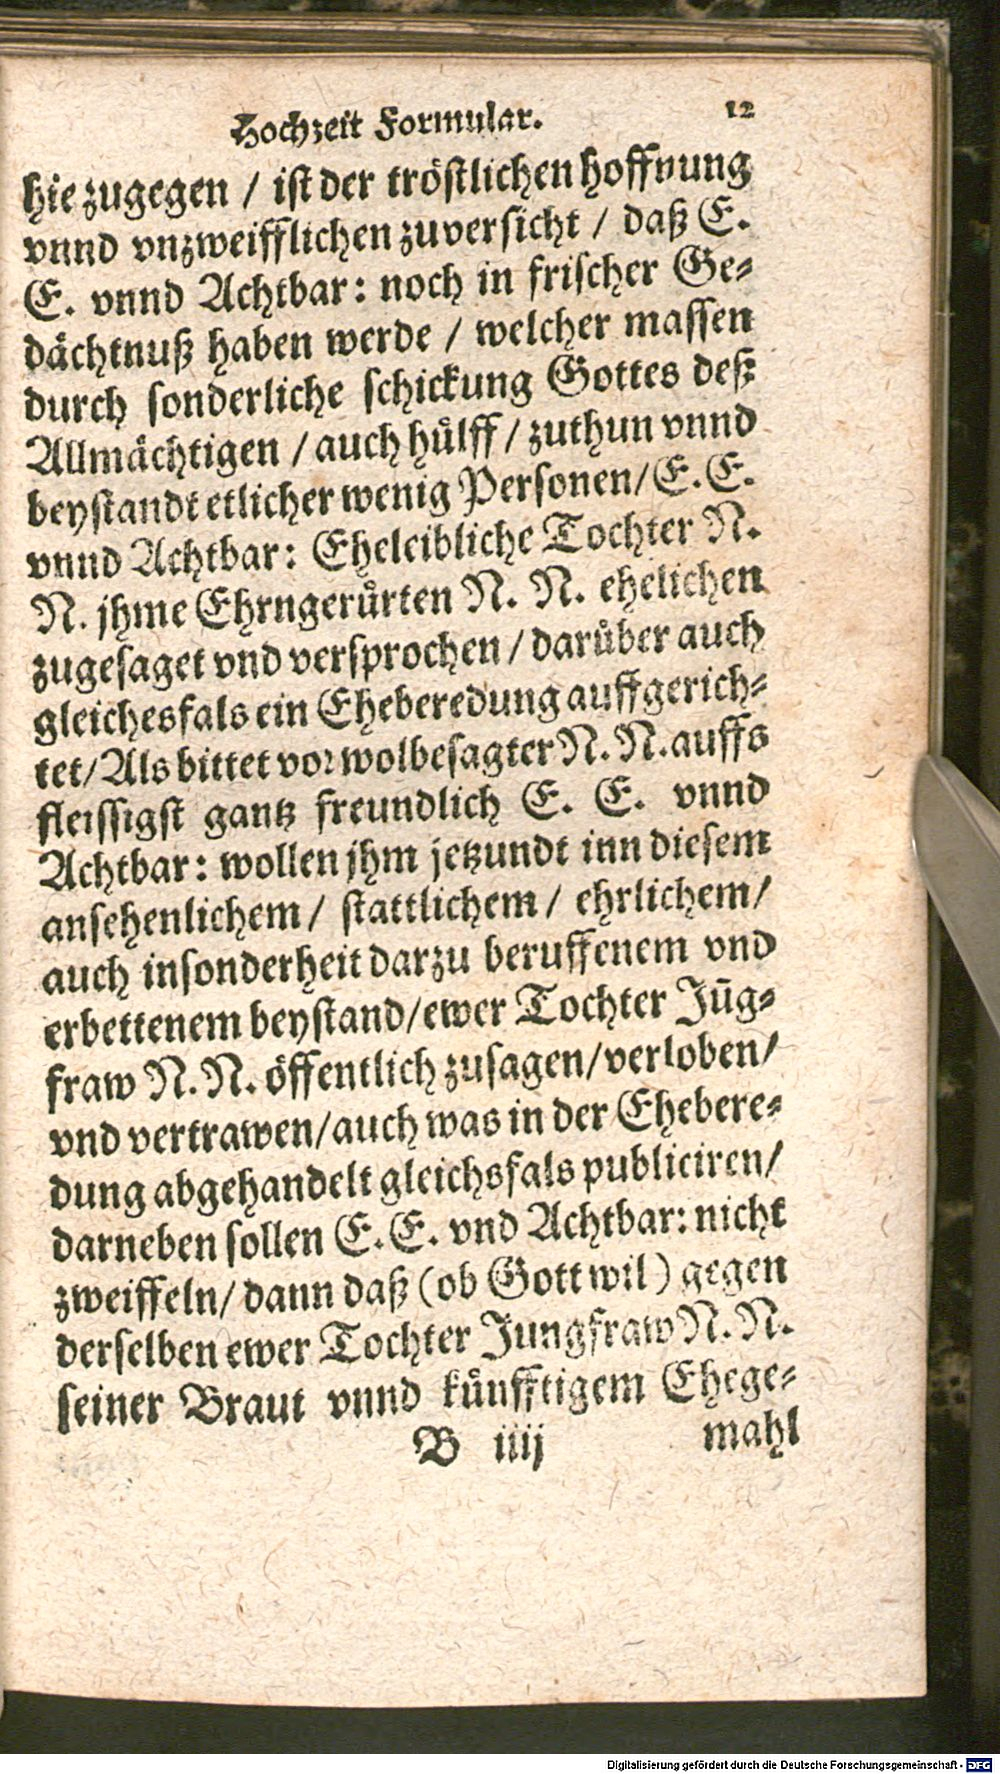 Hochzeit Formular. 12
hie zugegen / ist der tröstlichen hoffnung
vnnd vnzweifflichen zuversicht / daß E.
E. vnnd Achtbar: noch in frischer Ge-
dächtnuß haben werde / welcher massen
durch sonderliche schickung Gottes deß
Allmächtigen / auch hülff / zuthun vnnd
beystandt etlicher wenig Personen / E. E.
vnnd Achtbar: Eheleibliche Tochter N.
N. jhme Ehrngerürten N. N. ehelichen
zugesaget vnd versprochen / darüber auch
gleichesfals ein Eheberedung auffgerich-
tet / Als bittet vor wolbesagter N. N. auffs
fleissigst gantz freundlich E. E. vnnd
Achtbar: wollen jhm jetzundt inn diesem
ansehenlichem / stattlichem / ehrlichem /
auch insonderheit darzu beruffenem vnd
erbettenem beystand / ewer Tochter Jūg-
fraw N. N. öffentlich zusagen / verloben /
vnd vertrawen / auch was in der Ehebere-
dung abgehandelt gleichsfals publiciren /
darneben sollen E. E. vnd Achtbar: nicht
zweiffeln / dann daß (ob Gott wil) gegen
derselben ewer Tochter Jungfraw N. N.
seiner Braut vnnd künfftigem Ehege-
B iiij mahl
Digitalisierung gefördert durch die Deutsche Forschungsgemeinschaft - DFG